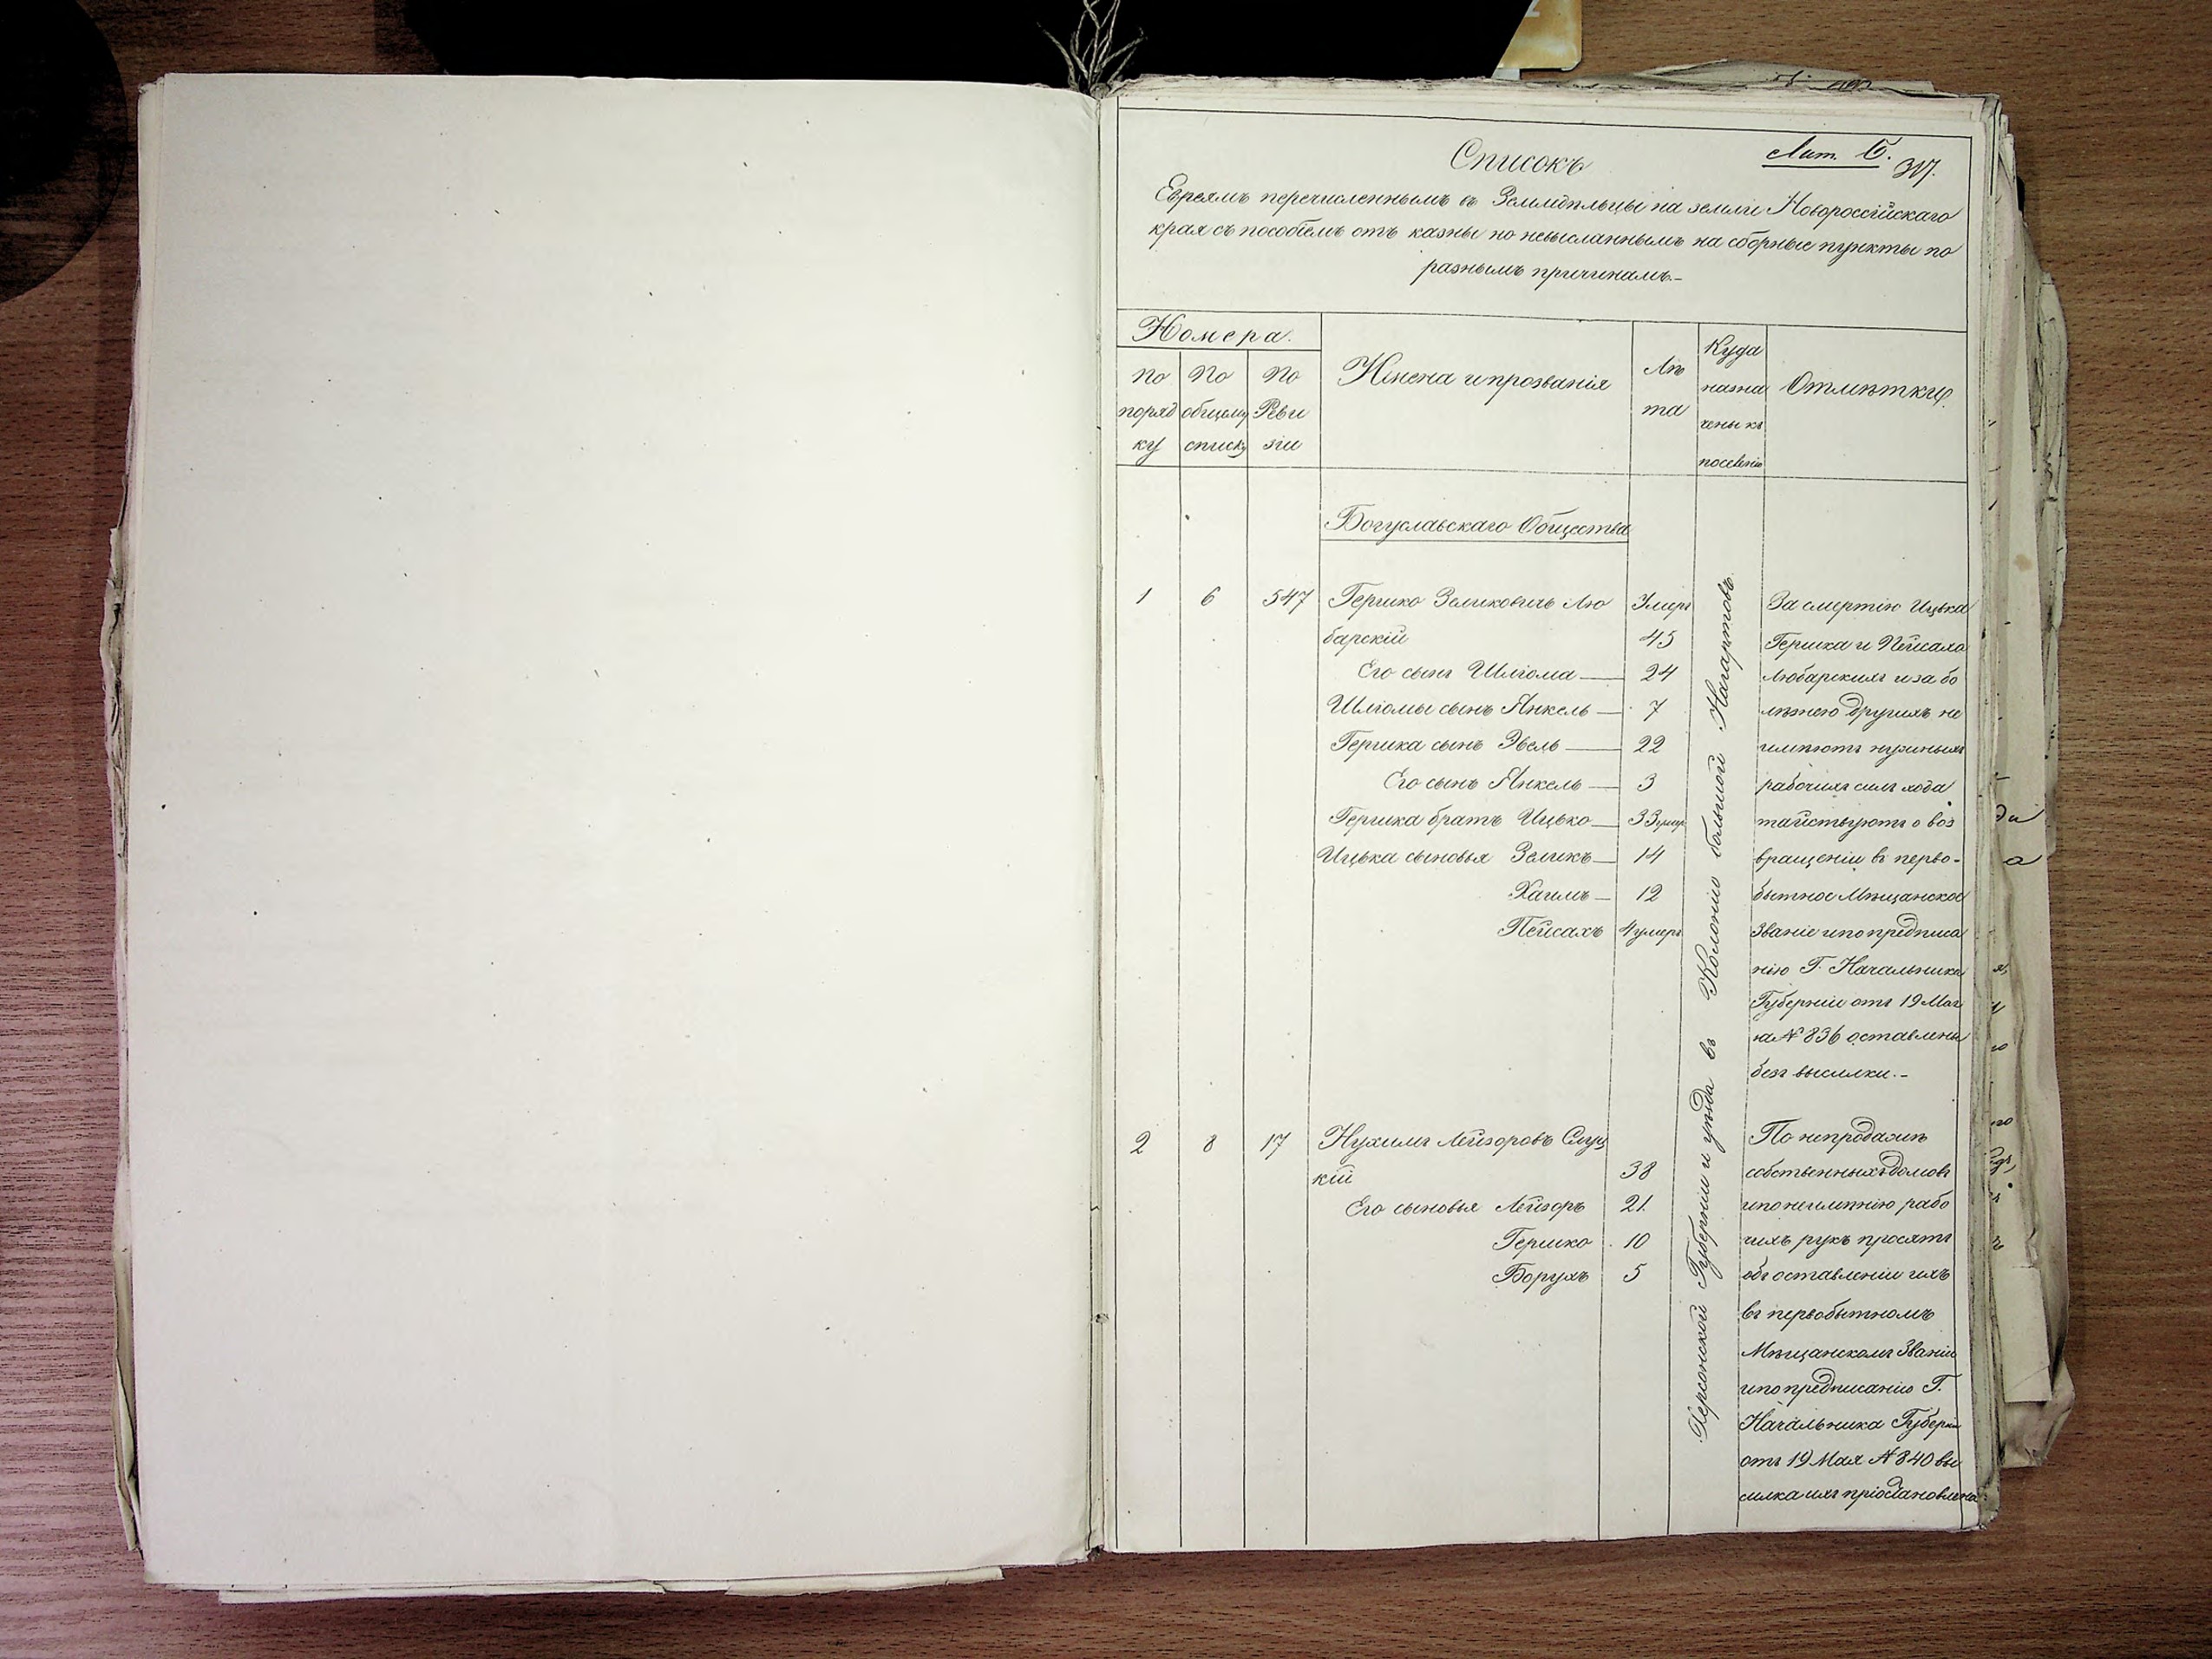 Лит. Б.
317.
Списокъ
Евреямъ перечисленнымъ въ Земледѣльцы на земли Новороссійскаго
края съ пособіемъ отъ казны но невысланнымъ на сборные пункты по
разнымъ причинамъ.–
Номера.
по порядку
По общему списку
По Ревизіи
Имена и прозванія
Лѣта
Куда назначены къ поселенію
Отмѣтки.
Богуславскаго Общества
1 6 547 Гершко Зеликовичъ Лю
барскій 45
Его сынъ Шліома — 24
Шліомы сынъ Янкель — 7
Гершка сынъ Эвель — 22
Его сынъ Янкель — 3
Гершка братъ Ицько — 33 умер
Ицька сыновья Зеликъ — 14
Хаимъ — 12
Пейсахъ 4 умеръ
Херсонской Губерніи и уѣзда въ Колонію большой Нагартовъ
За смертію Ицька
Гершка и Пейсаха
Любарскихъ и за бо
лѣзнею другихъ не
имѣютъ нужныхъ
рабочихъ силъ хода
тайствуютъ о воз
вращеніи въ перво-
бытное Мѣщанское
Званіе и по предписа
нію Г. Начальника
Губерніи отъ 19 Ма
я № 836 оставлены
безъ высылки.–
2 8 17 Нухимъ Лейзоровъ Слуц
кій 38
Его сыновья Лейзоръ 21.
Гершко 10
Борухъ 5
По непродажѣ
собственныхъ домовъ
и по неимѣнію рабо
чихъ рукъ просятъ
объ оставленіи ихъ
въ первобытномъ
Мѣщанскомъ Званіи
и по предписанію Г.
Начальника Губерніи
отъ 19 Мая № 840 вы
сылка ихъ пріостановлена